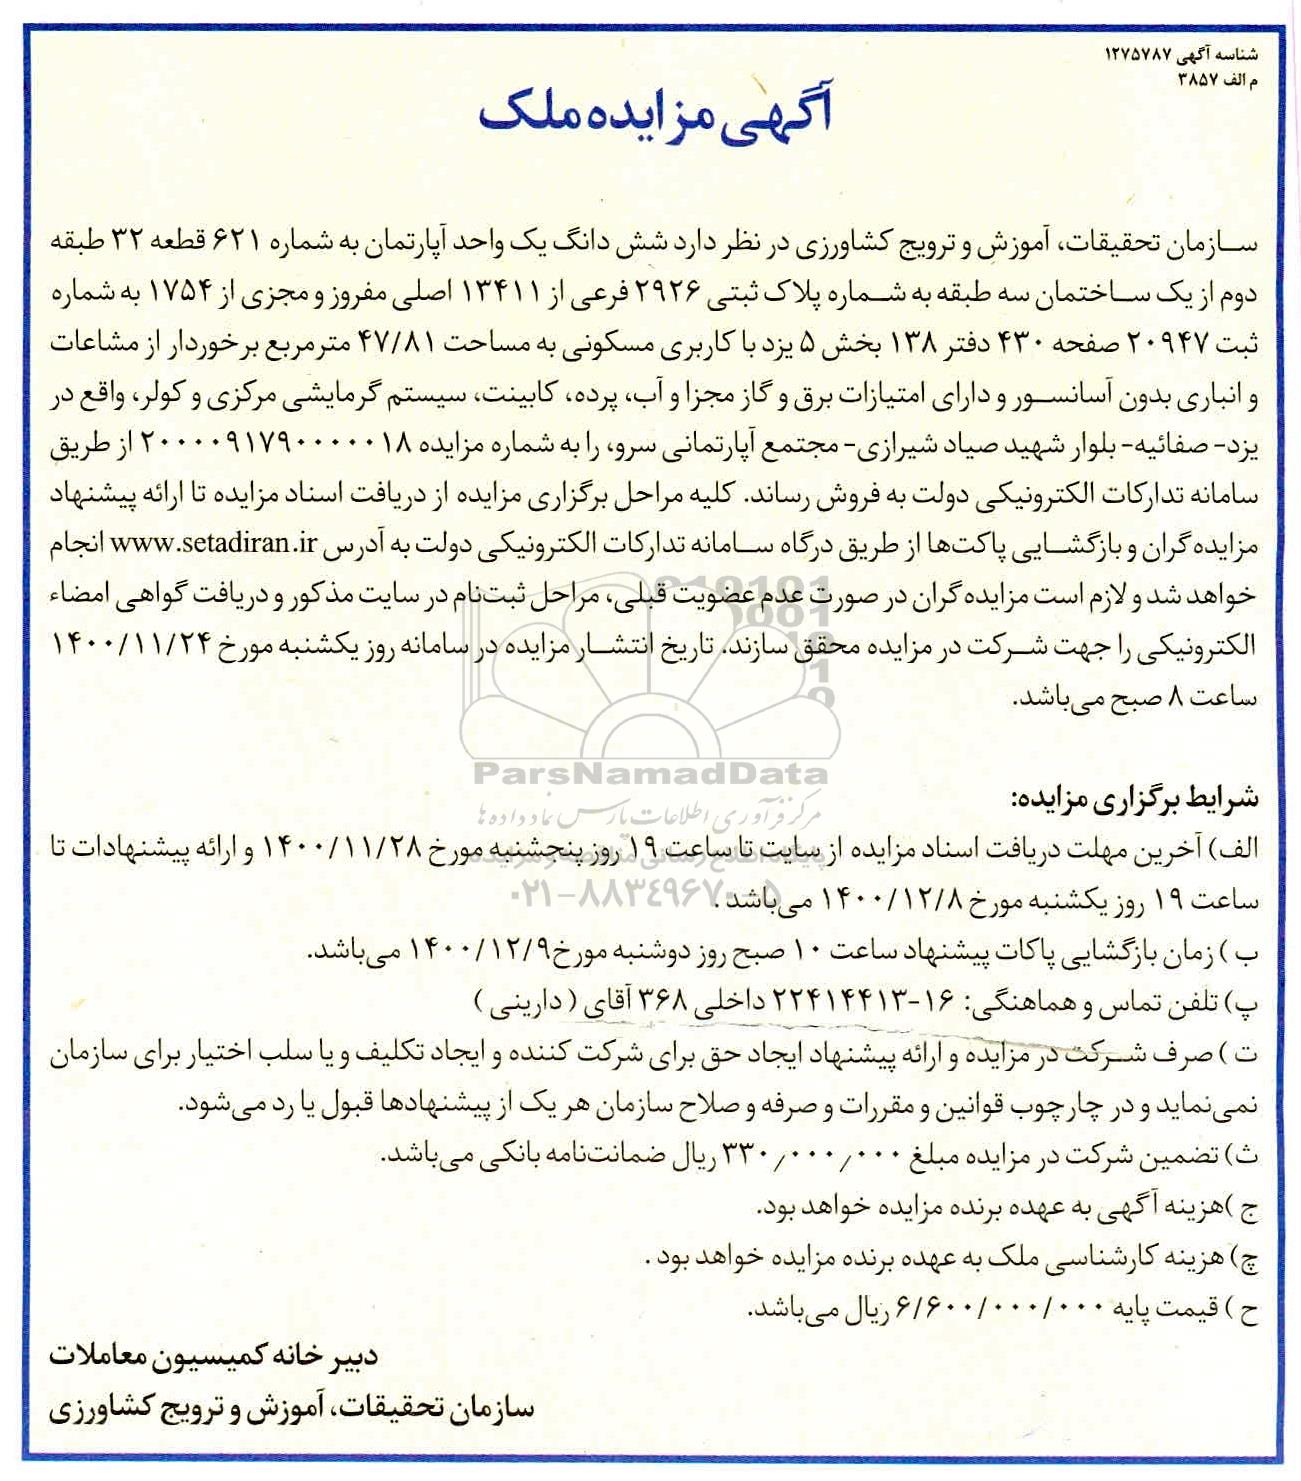 شناسه آگهی ۱۲۷۵۷۸۷
م الف ۳۸۵۷
آگهی مزایده ملک
سازمان تحقیقات، آموزش و ترویج کشاورزی در نظر دارد شش دانگ یک واحد آپارتمان به شماره ۶۲۱ قطعه ۳۲ طبقه
دوم از یک ساختمان سه طبقه به شماره پلاک ثبتی ۲۹۲۶ فرعی از ۱۳۴۱۱ اصلی مفروز و مجزی از ۱۷۵۴ به شماره
ثبت ۲۰۹۴۷ صفحه ۴۳۰ دفتر ۱۳۸ بخش ۵ یزد با کاربری مسکونی به مساحت ۴۷/۸۱ مترمربع برخوردار از مشاعات
و انباری بدون آسانسور و دارای امتیازات برق و گاز مجزا و آب، پرده، کابینت، سیستم گرمایشی مرکزی و کولر، واقع در
یزد- صفائیه- بلوار شهید صیاد شیرازی- مجتمع آپارتمانی سرو، را به شماره مزایده ۲۰۰۰۰۹۱۷۹۰۰۰۰۰۱۸ از طریق
سامانه تدارکات الکترونیکی دولت به فروش رساند. کلیه مراحل برگزاری مزایده از دریافت اسناد مزایده تا ارائه پیشنهاد
مزایده‌گران و بازگشایی پاکت‌ها از طریق درگاه سامانه تدارکات الکترونیکی دولت به آدرس www.setadiran.ir انجام
خواهد شد و لازم است مزایده‌گران در صورت عدم عضویت قبلی، مراحل ثبت‌نام در سایت مذکور و دریافت گواهی امضاء
الکترونیکی را جهت شرکت در مزایده محقق سازند. تاریخ انتشار مزایده در سامانه روز یکشنبه مورخ ۱۴۰۰/۱۱/۲۴
ساعت ۸ صبح می‌باشد.
ParsNamadData
مرکز فرآوری اطلاعات پارس نماد داده‌ها
شرایط برگزاری مزایده:
الف) آخرین مهلت دریافت اسناد مزایده از سایت تا ساعت ۱۹ روز پنجشنبه مورخ ۱۴۰۰/۱۱/۲۸ و ارائه پیشنهادات تا
ساعت ۱۹ روز یکشنبه مورخ ۱۴۰۰/۱۲/۸ می‌باشد .
۰۲۱-۸۸۳۴۹۶۷۰-۵
ب ) زمان بازگشایی پاکات پیشنهاد ساعت ۱۰ صبح روز دوشنبه مورخ۱۴۰۰/۱۲/۹ می‌باشد.
پ) تلفن تماس و هماهنگی: ۱۶-۲۲۴۱۴۴۱۳ داخلی ۳۶۸ آقای ( دارینی )
ت ) صرف شرکت در مزایده و ارائه پیشنهاد ایجاد حق برای شرکت کننده و ایجاد تکلیف و یا سلب اختیار برای سازمان
نمی‌نماید و در چارچوب قوانین و مقررات و صرفه و صلاح سازمان هر یک از پیشنهادها قبول یا رد می‌شود.
ث) تضمین شرکت در مزایده مبلغ ۳۳۰٫۰۰۰٫۰۰۰ ریال ضمانت‌نامه بانکی می‌باشد.
ج )هزینه آگهی به عهده برنده مزایده خواهد بود.
چ) هزینه کارشناسی ملک به عهده برنده مزایده خواهد بود .
ح ) قیمت پایه ۶/۶۰۰/۰۰۰/۰۰۰ ریال می‌باشد.
دبیر خانه کمیسیون معاملات
سازمان تحقیقات، آموزش و ترویج کشاورزی